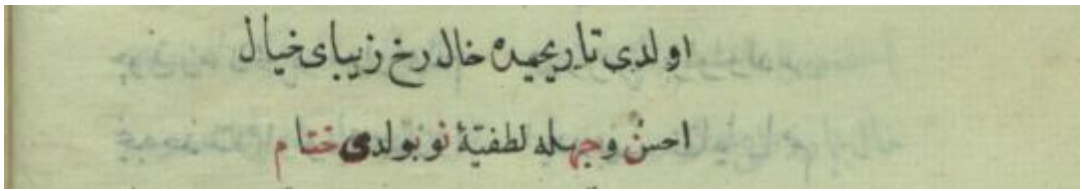 اولدی تاریحیده خال رخ زیبای خیال
احسن وجهله لطفیّۀ نو بولدی ختام